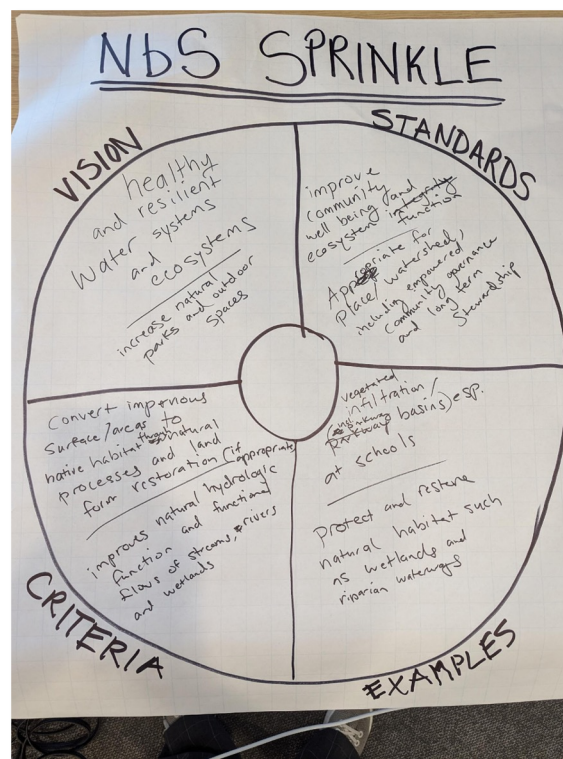 NbS SPRINKLE
VISION
healthy
and resilient
Water systems
and
ecosystems
increase natural
parks and outdoor
spaces
STANDARDS
improve
community
well being and
ecosystem integrity
function
Appropriate for
Place/watershed,
including empowered
community governance
and long term
Stewardship
Convert impervious
surface/areas to
native habitat through natural
processes and land
form restoration (if appropriate)
improves natural hydrologic
function and functional
flows of streams, rivers
and wetlands
CRITERIA
vegetated
infiltration/
basins) esp.
at schools
protect and restore
natural habitat such
as wetlands and
riparian waterways
EXAMPLES